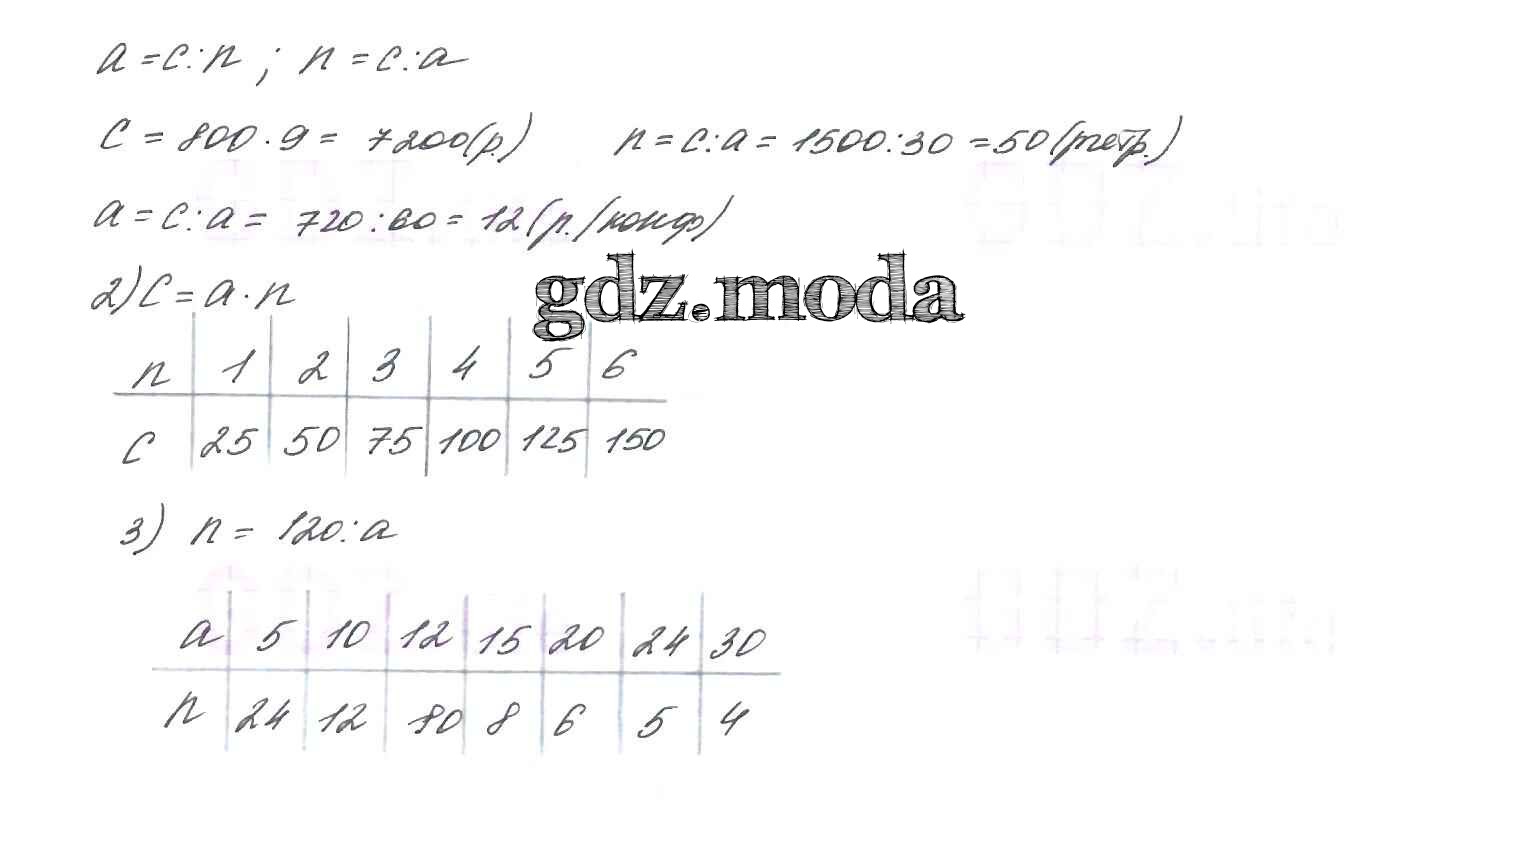 a = c : n ; n = c : a
C = 800 · 9 = 7200 (р.) n = c : a = 1500 : 30 = 50 (тетр.)
a = c : a = 720 : 60 = 12 (р./конф)
gdz.moda
2) C = a · n
n 1 2 3 4 5 6
C 25 50 75 100 125 150
3) n = 120 : a
a 5 10 12 15 20 24 30
n 24 12 80 8 6 5 4